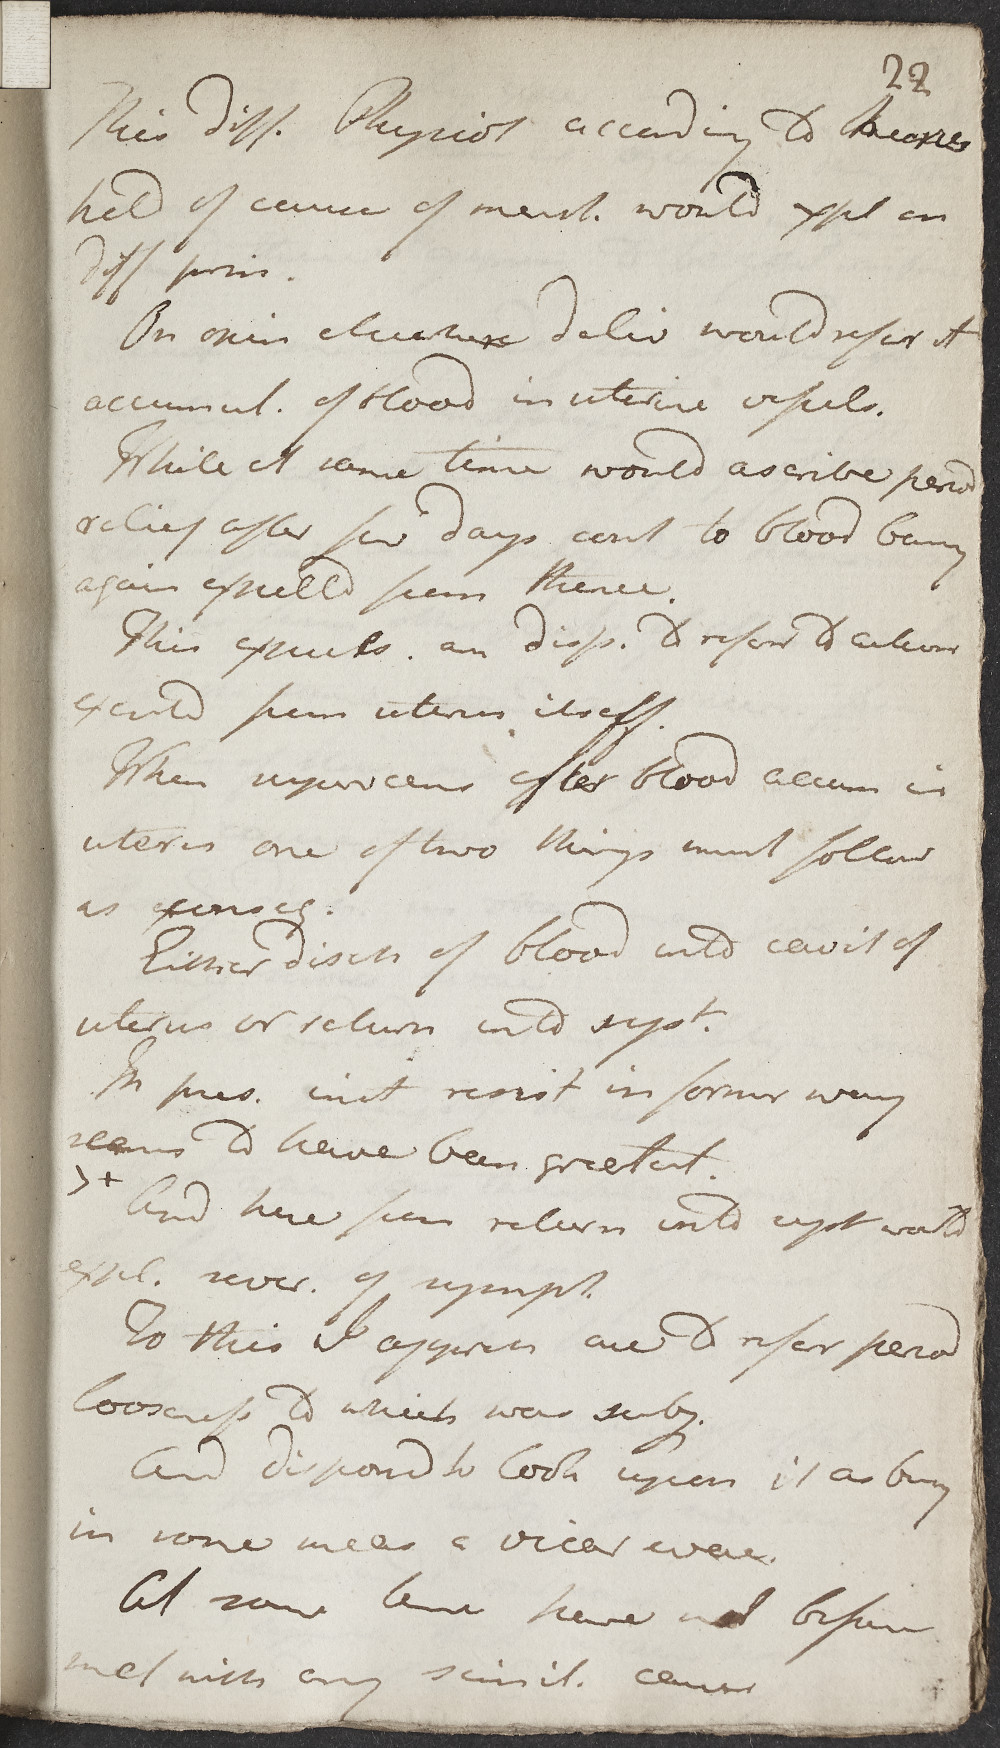 22
This diff. Physiol according to theories
held of cause of menst. would expl on
diff prin.
On opin elsewhere deliv would refer it
accumul. of blood in uterine vessels.
While at same time would ascribe period
relief after few days cont to blood being
again expelld from thence.
This expuls. am disp. to refer to action
exertd from uterus itself.
When supervenes after blood accum in
uterus one of two things must follow
as conseq.
Either disch of blood into cavit of
uterus or return into syst.
In pres. inst resist in former way
seems to have been greatest.
>+
And here from return into syst would
expl. recur. of sympt.
To this I appreh are to refer period
looseness to which was subj.
And disposd to look upon it as being
in some meas a vicar evac.
At same time have not before
met with any simil. cases